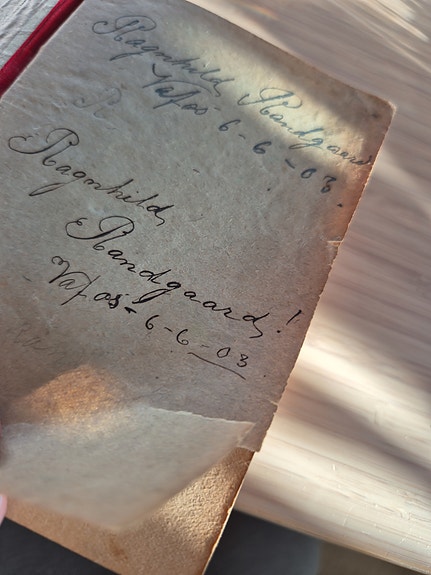 Ragnhild Randgaard
Vafos 6-6-03.
Ragnhild
Randgaard!
Vafos- 6-6-03.